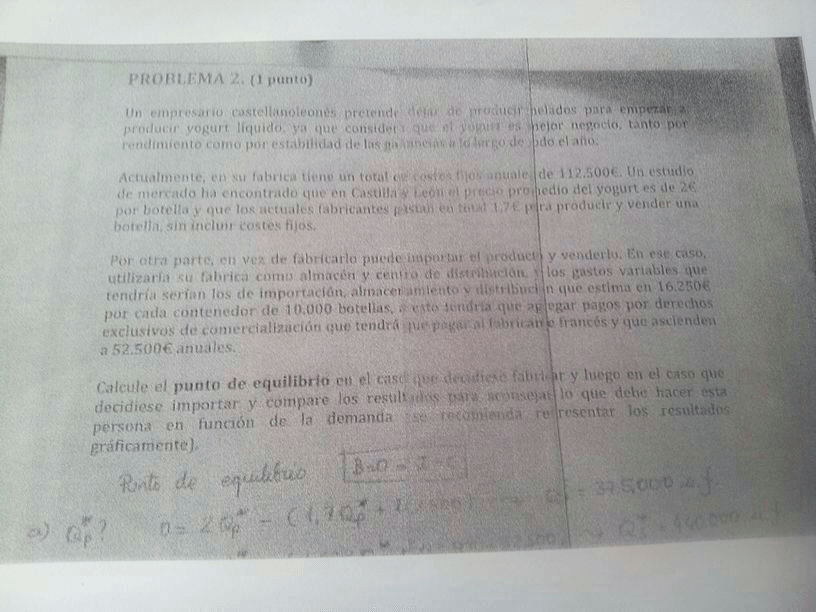 PROBLEMA 2. (1 punto)
Un empresario castellanoleonés pretende dejar de producir helados para empezar a
producir yogurt líquido, ya que considera que el yogurt es mejor negocio, tanto por
rendimiento como por estabilidad de las ganancias a lo largo de todo el año.
Actualmente, en su fabrica tiene un total de costes fijos anuales de 112.500€. Un estudio
de mercado ha encontrado que en Castilla y León el precio promedio del yogurt es de 2€
por botella y que los actuales fabricantes gastan en total 1,7€ para producir y vender una
botella, sin incluir costes fijos.
Por otra parte, en vez de fabricarlo puede importar el producto y venderlo. En ese caso,
utilizaría su fabrica como almacén y centro de distribución, y los gastos variables que
tendría serían los de importación, almacenamiento y distribución que estima en 16.250€
por cada contenedor de 10.000 botellas, a esto tendría que agregar pagos por derechos
exclusivos de comercialización que tendrá que pagar al fabricante francés y que ascienden
a 52.500€ anuales.
Calcule el punto de equilibrio en el caso que decidiese fabricar y luego en el caso que
decidiese importar y compare los resultados para aconsejar lo que debe hacer esta
persona en función de la demanda (se recomienda representar los resultados
gráficamente).
Punto de equilibrio B=0 = I - C
a) Qp*? 0 = 2Qp* - (1,7Qp* + = 375.000 u.f.
= 440.000 u.f.